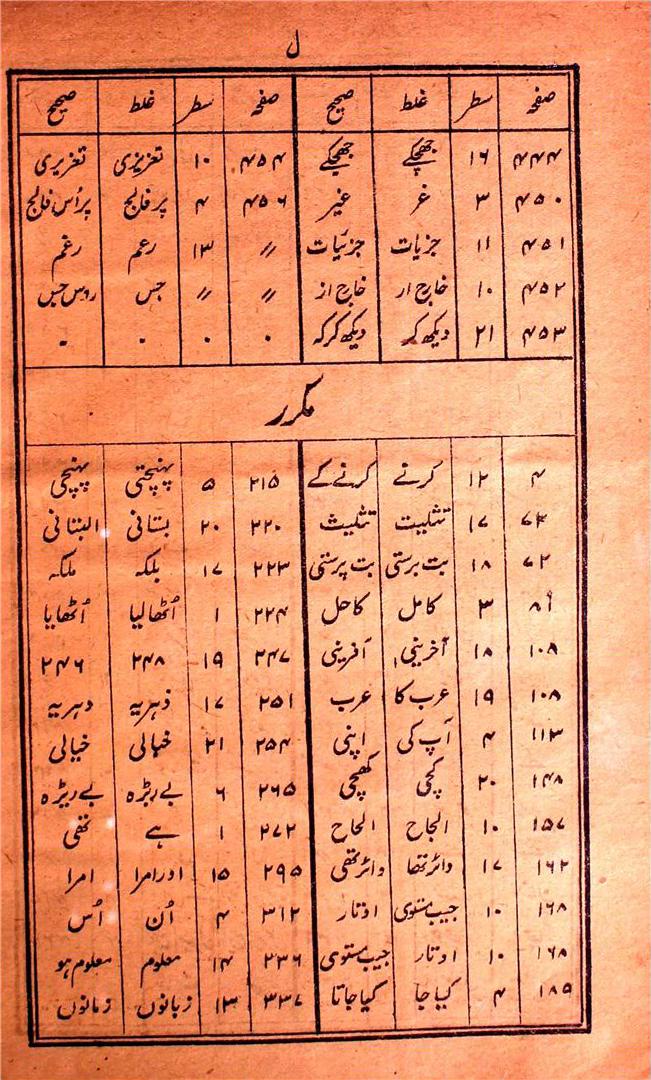 ل
صفحہ سطر غلط صحیح صفحہ سطر غلط صحیح
۴۴۴ ۱۶ جھچکے جھجکے ۴۵۴ ۱۰ تعزیزی تعزیری
۴۵۰ ۳ غر غیر ۴۵۶ ۴ پر فالج پر اُس فالج
۴۵۱ ۱۱ جزیات جزئیات 〃 ۱۳ رعم رغم
۴۵۲ ۱۰ خارج ار خارج از 〃 〃 جس
۴۵۳ ۲۱ دیکھ کہ دیکھ کر کہ ۰ ۰ ۰ ۰
مکرر
۴ ۱۲ کرنے کرنے کے ۲۱۵ ۵ پہنچتی پہنچی
۷۳ ۱۷ تثلیت تثلیث ۲۲۰ ۲۰ بستانی البستانی
۷۲ ۱۸ بت برستی بت پرستی ۲۲۳ ۱۷ بلکہ ملکہ
۸۱ ۳ کامل کاحل ۲۲۴ ۱ اُٹھالیا اُٹھایا
۱۰۸ ۱۸ آخرینی آفرینی ۲۴۷ ۱۹ ۲۴۸ ۲۴۶
۱۰۸ ۱۹ عرب کا عرب ۲۵۱ ۱۷ ذہریہ دہریہ
۱۱۳ ۴ آپ کی اپنی ۲۵۴ ۲۱ خبالی خیالی
۱۴۸ ۲۰ کچی کھچی ۲۶۵ ۶ بے ربڑہ بے ریڑہ
۱۵۷ ۱۰ الجاح الحاح ۲۷۲ ۱ ہے تھی
۱۶۲ ۱۷ دائر تھا دائر تھی ۲۹۵ ۱۵ اور امرا امرا
۱۶۸ ۱۰ جیب مستوی اوتار ۳۱۲ ۴ اُن اُس
۱۶۸ ۱۰ اوتار جیب مستوی ۲۳۶ ۱۴ معلوم معلوم ہو
۱۸۵ ۴ کیا جا کیا جاتا ۳۳۷ ۱۳ زبانوں زمانوں